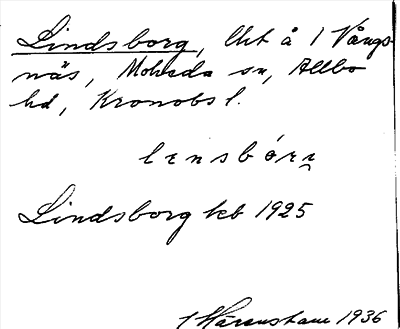 Lindsborg, lht å 1 Vångs-
näs, Moheda sn, Allbo
hd, Kronobs l.
lɪnsbórɪ
Lindsborg kb 1925
1936